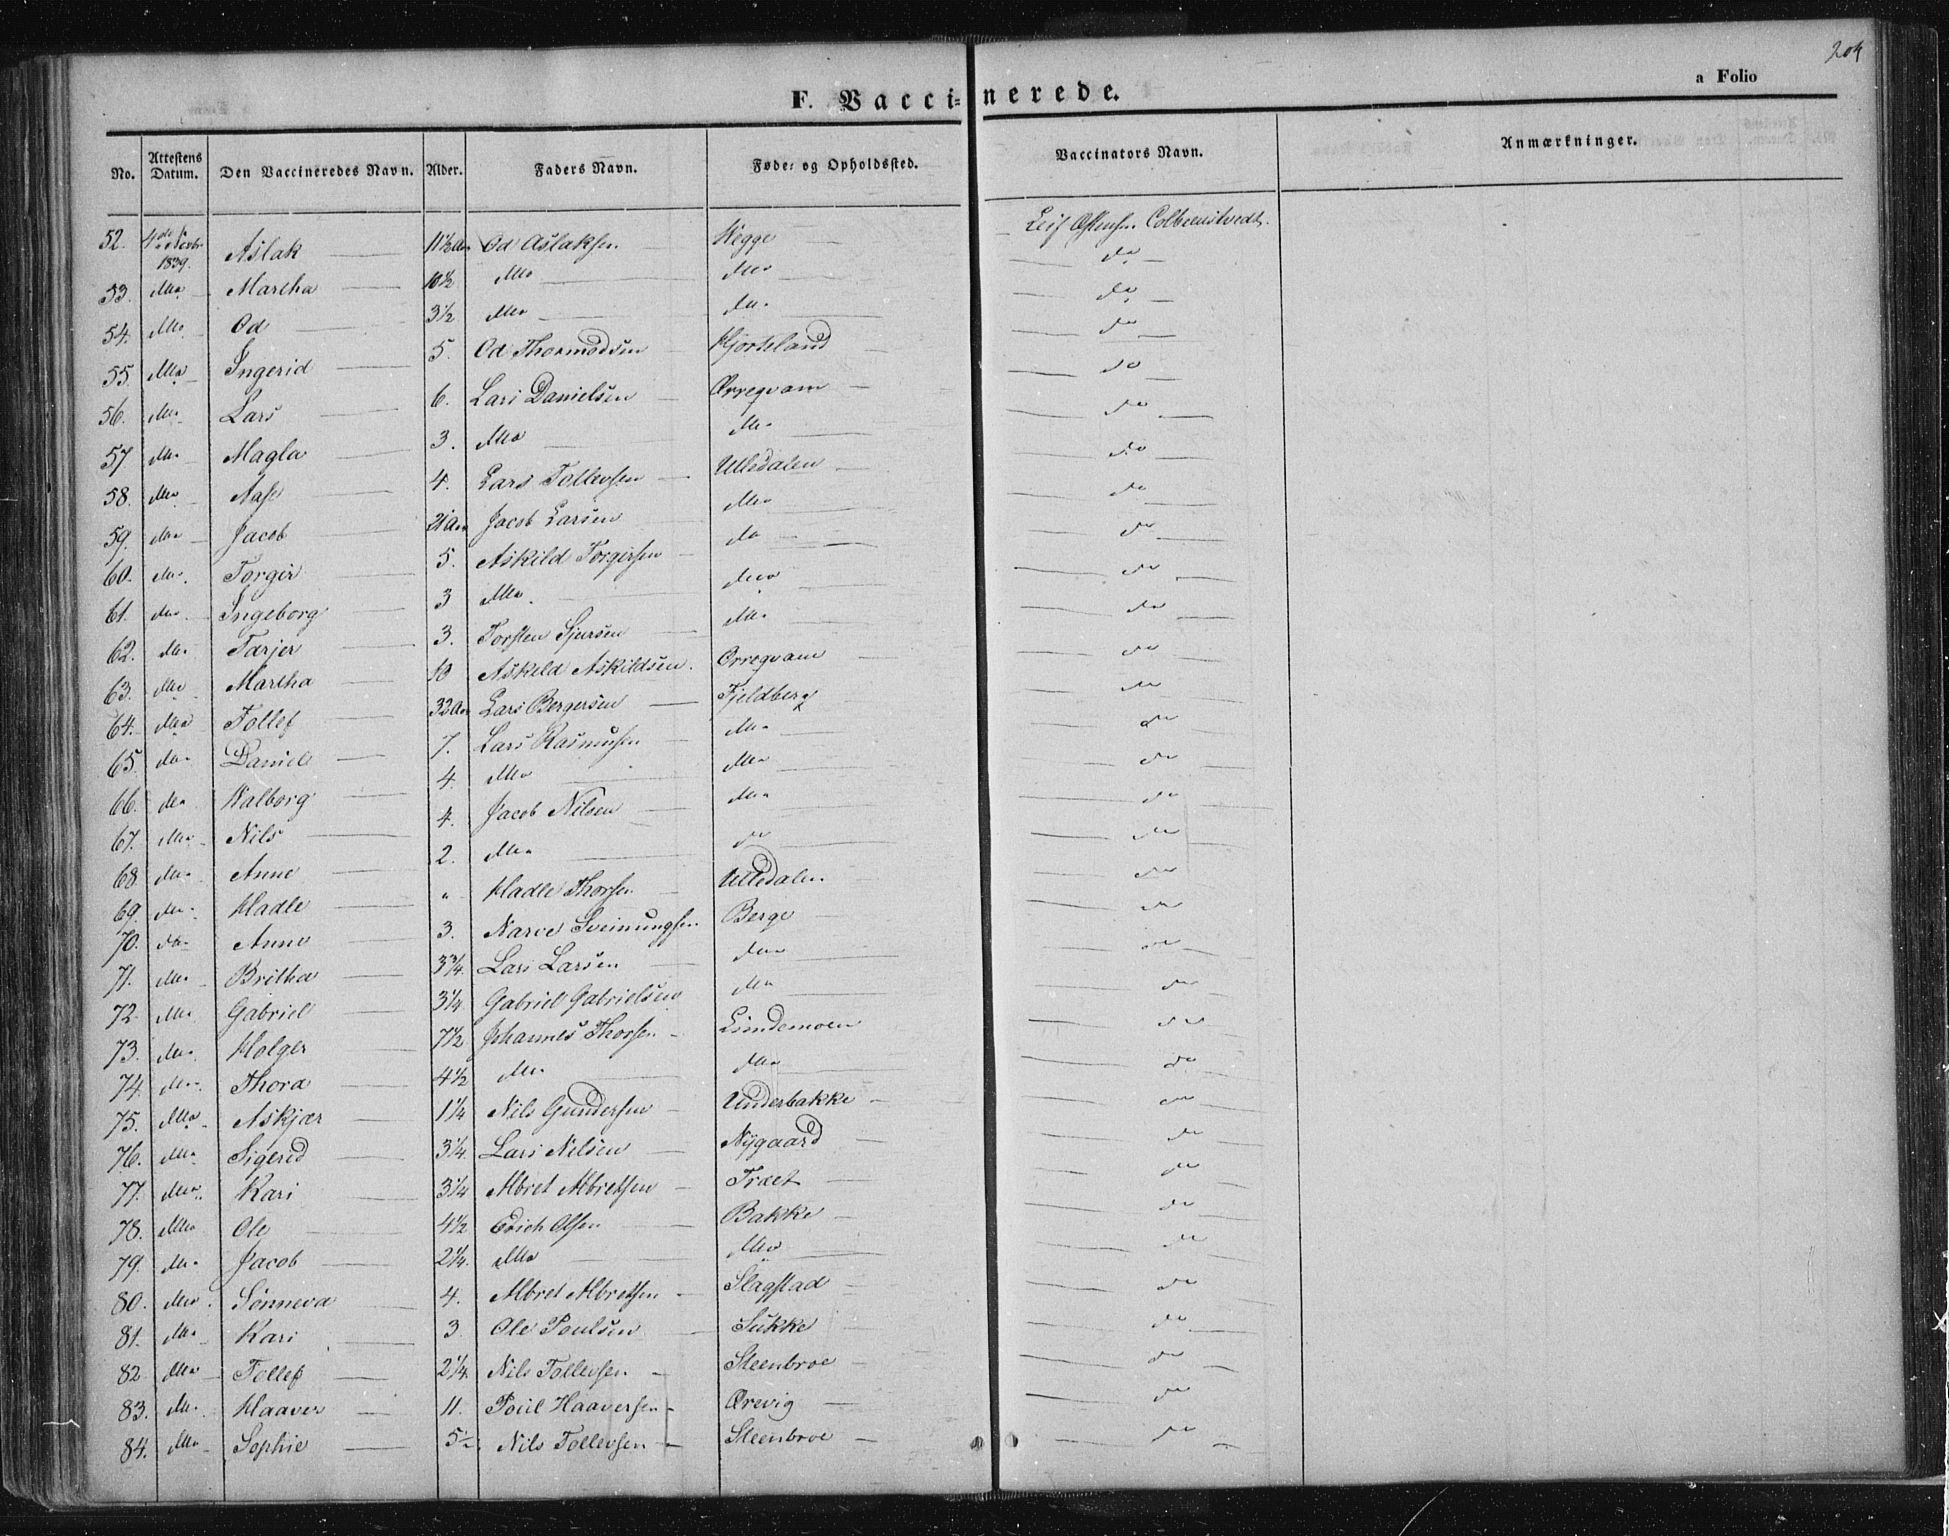 204
a Folio
F. Vaccinerede.
No. Attestens Datum. Den Vaccineredes Navn. Alder. Faders Navn. Føde- og Opholdssted. Vaccinators Navn. Anmærkninger.
52. 4de Novbr 1839. Aslak 11½ Aar Od Aslaksen Hegge Leif
53. Mo Martha 10½ Mo Mo do
54. Mo Od 3½ Mo Mo do
55. Mo Ingerid 5. Od Thormodsen Hjorteland do
56. Mo Lars 6. Lars Danielsen Ørregvam do
57 Mo Magla 3. Mo Mo do
58. Mo Aase 4. Lars Tollevsen Ulledalen do
59. Mo Jacob 21 Aar Jacob Larsen Mo do
60. Mo Torgir 5. Askild Torgirsen Mo do
61. Mo Ingeborg 3 Mo Mo do
62. Mo Tarjer 3. Torsten Sjursen Mo do
63. Mo Martha 10 Askild Askildsen. Ørregvam do
64. Mo Tollef 32 Aar Lars Bergersen Fjeldberg do
65. Mo Daniel 7. Lars Rasmusen Mo do
66. Mo Walborg 4. Mo Mo do
67. Mo Nils 4. Jacob Nilsen Mo do
68 Mo Anne 2. Mo do do
69. Mo Hadle " Hadle Thorsen Ulledalen do
70. Mo Anne 3. Narve Sveinungsen Berge do
71. Mo Britha 3¾. Lars Larsen Mo do
72. Mo Gabriel 3¼. Gabriel Gabrielsen Mo do
73. Mo Holger 7½ Johannes Thorsen Lindemoen do
74. Mo Thora 4½ Mo Mo do
75. Mo Askjær 1¼ Nils Gundersen Underbakke do
76. Mo Sigerid 3¼. Lars Nilsen Nygaard do
77. Mo Kari 3¼ Albret Albretsen Træet do
78. Mo Ole 4½ Erich Olsen Bakke do
79. Mo Jacob 2¼. Mo Mo do
80. Mo Sønneva 4. Albret Albretsen Slagstad do
81. Mo Kari 3 Ole Poulsen Sukke do
82 Mo Tollef 2¼. Nils Tollevsen Steenbroe do
83. Mo Haaver 11. Poul Haaversen Ørevig do
84. Mo Sophie 5½. Nils Tollevsen Steenbroe do